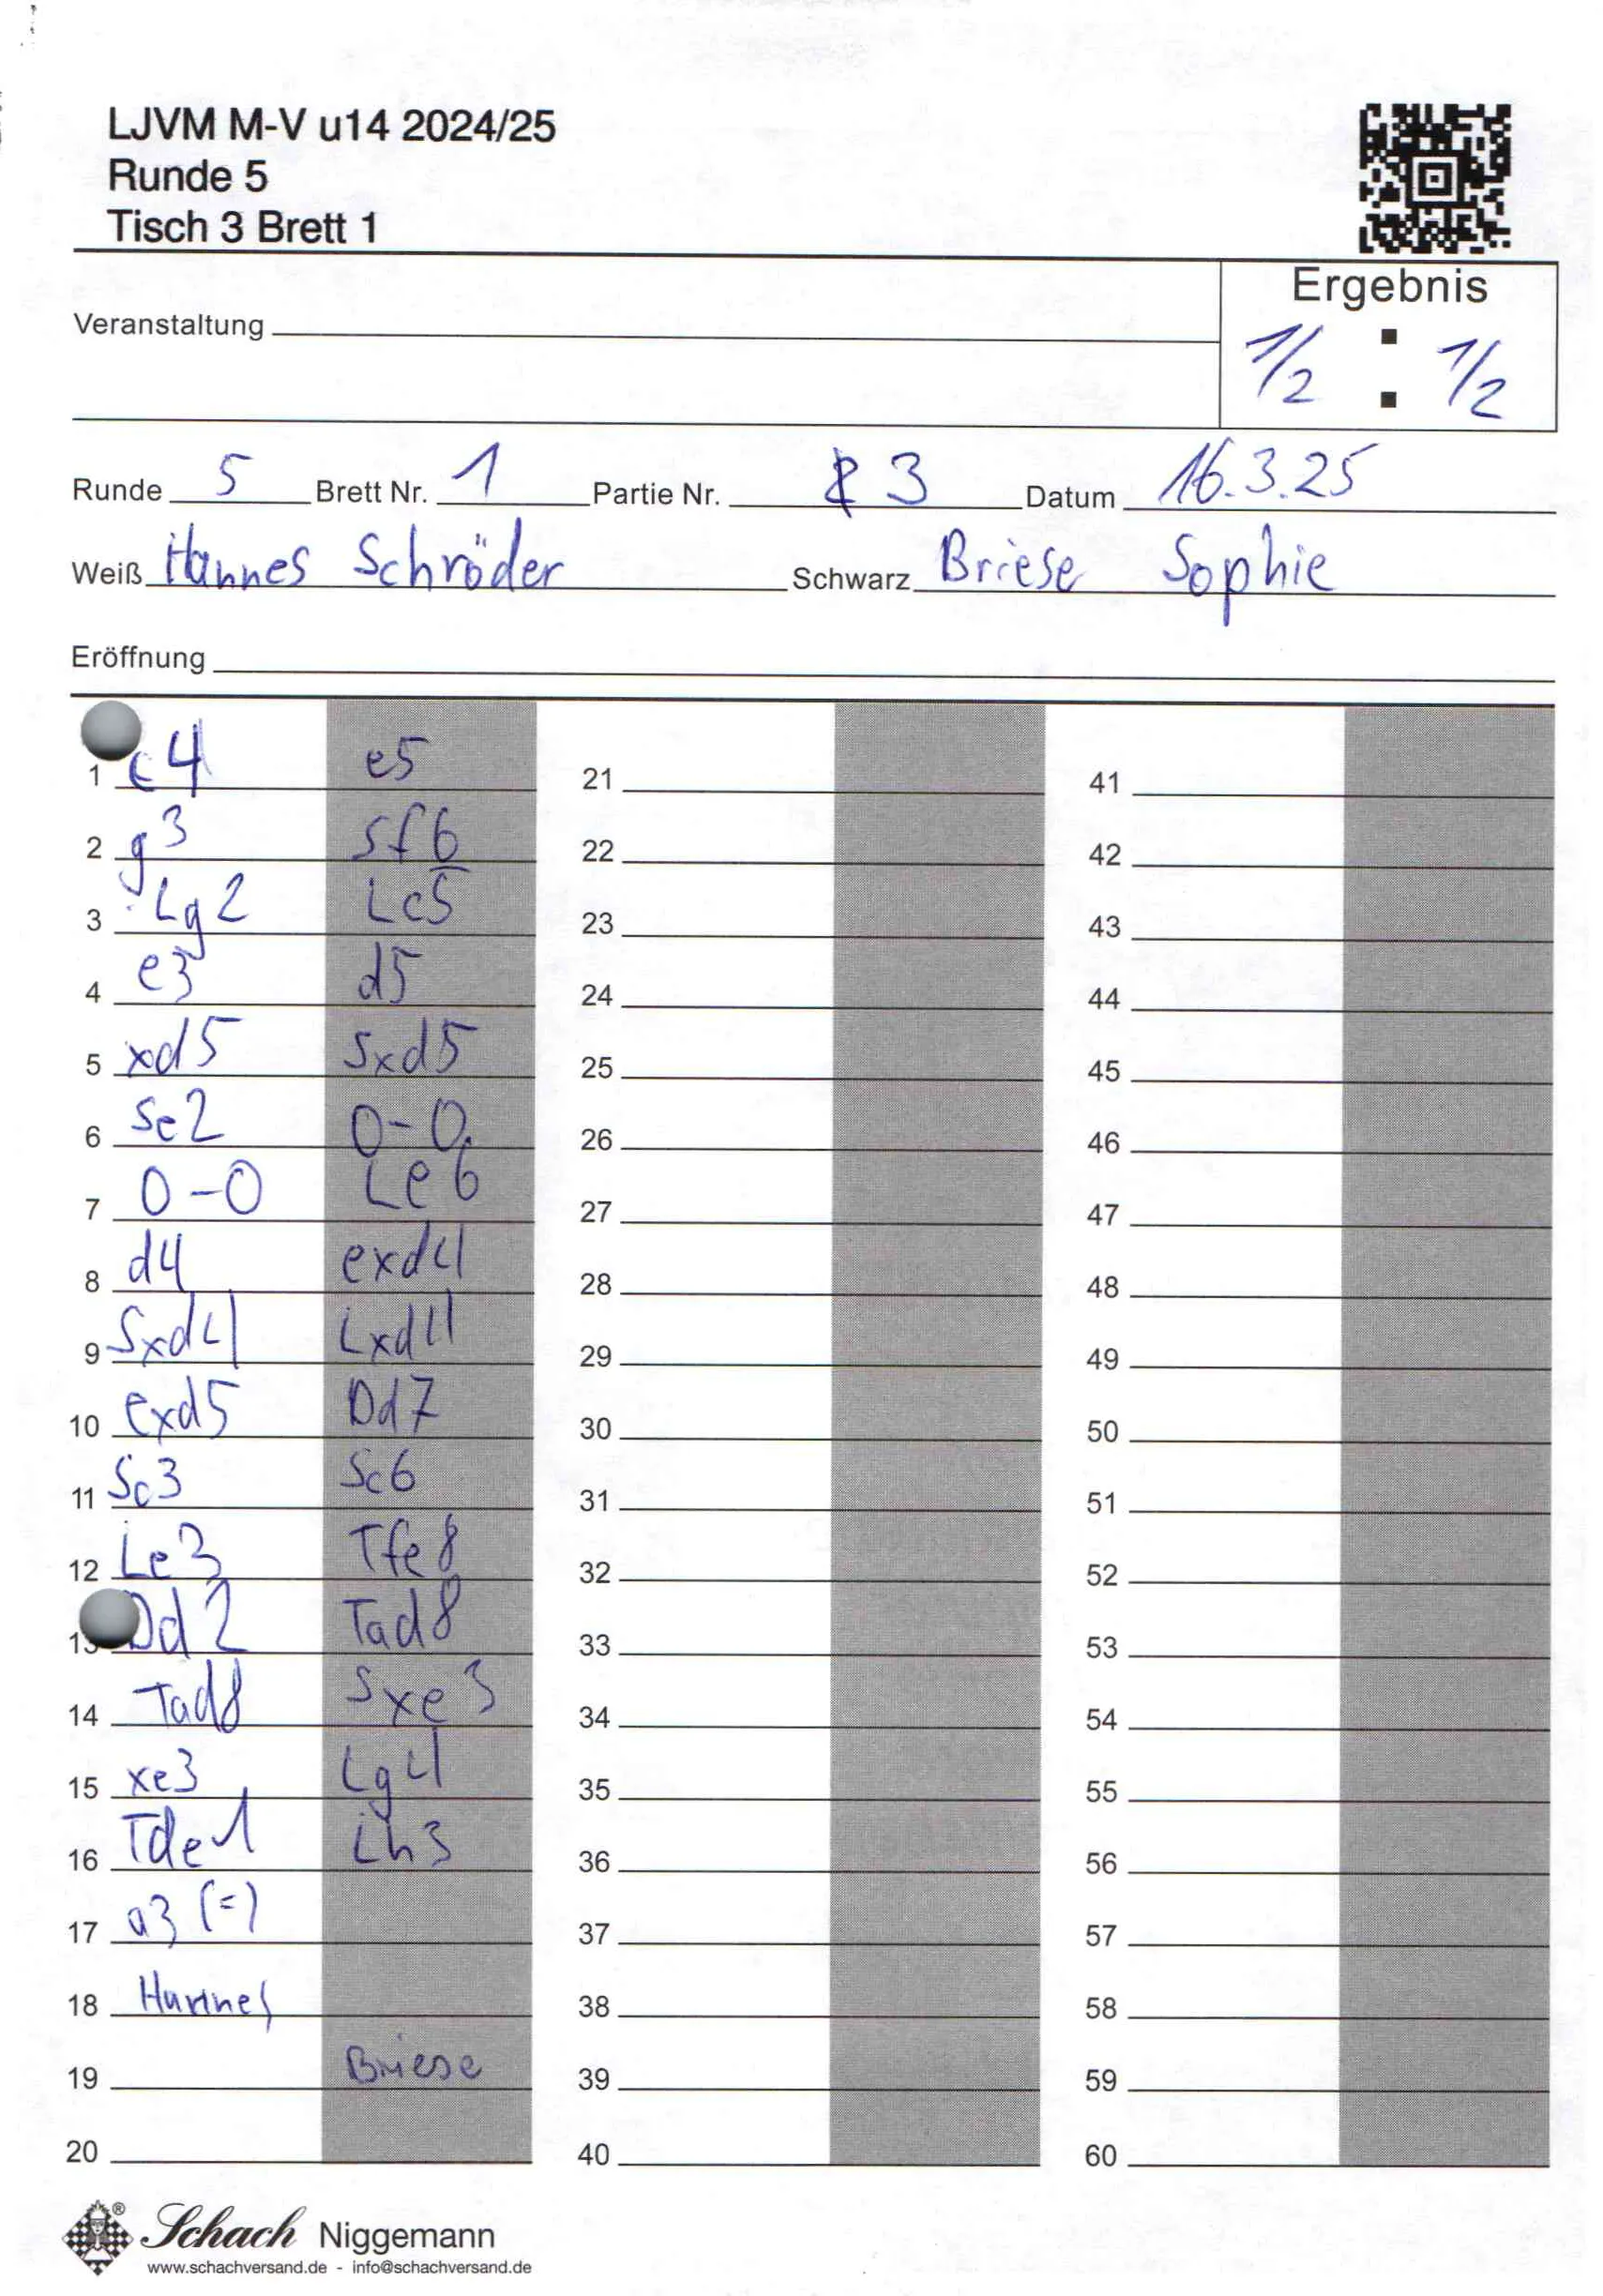 LJVM M-V u14 2024/25
Runde 5
Tisch 3 Brett 1
Ergebnis
Veranstaltung
1/2 : 1/2
Runde 5 Brett Nr. 1 Partie Nr. 3 Datum 16.3.25
Weiß Hannes Schröder Schwarz Briese Sophie
Eröffnung
1 c4 e5 21 41
2 g3 Sf6 22 42
3 Lg2 Lc5 23 43
4 e3 d5 24 44
5 xd5 Sxd5 25 45
6 Se2 0-0 26 46
7 0-0 Le6 27 47
8 d4 exd4 28 48
9 Sxd4 Lxd4 29 49
10 exd5 Dd7 30 50
11 Sc3 Sc6 31 51
12 Le3 Tfe8 32 52
13 Dd2 Tad8 33 53
14 Tad8 Sxe3 34 54
15 xe3 Lg4 35 55
16 Tde1 Lh3 36 56
17 a3 (=) 37 57
18 Hannes 38 58
19 Briese 39 59
20 40 60
Schach Niggemann
www.schachversand.de - info@schachversand.de